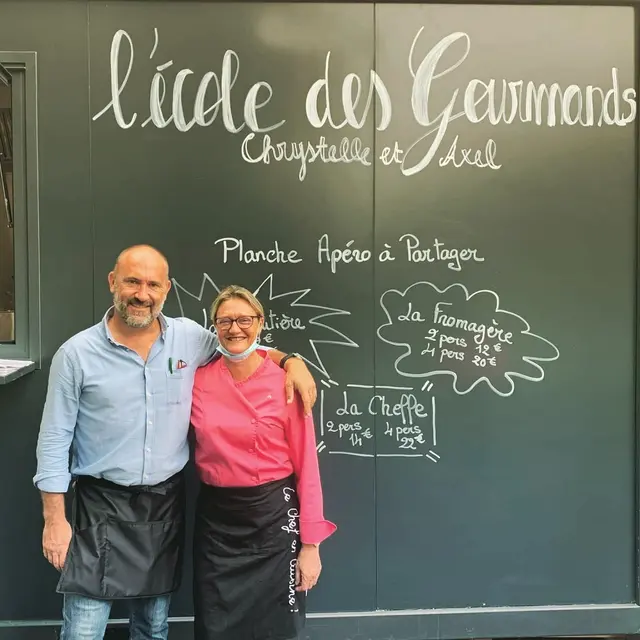 l'école des Gourmands
Chrystelle et Axel
Planche Apéro à Partager
La Fromagère
2 pers 12 €
4 pers 20 €
La Cheffe
2 pers 4 pers
14 € 22 €